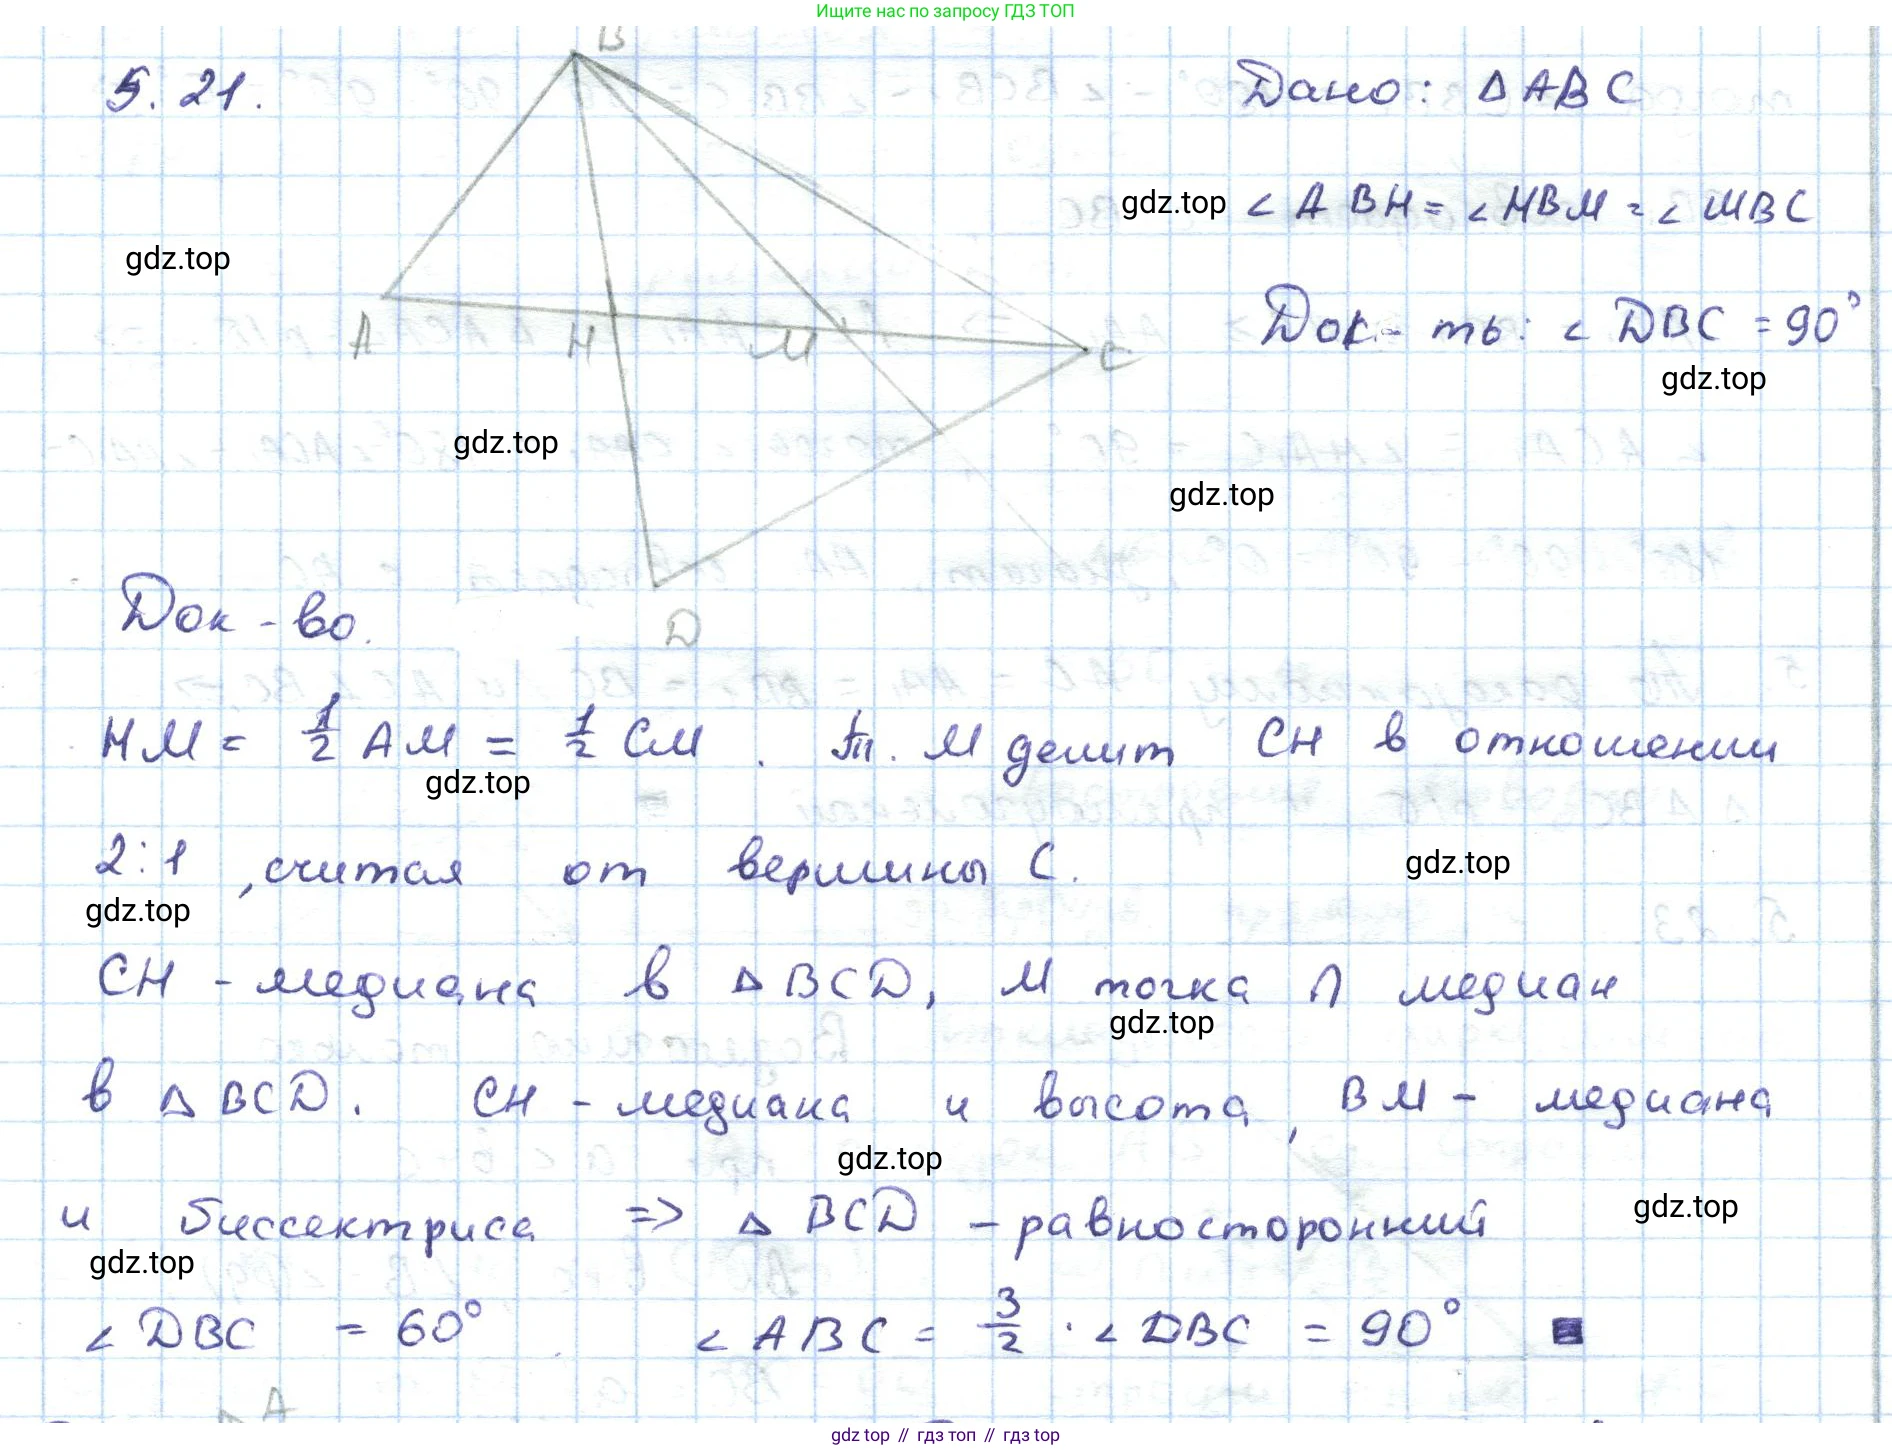 Ищите нас по запросу ГДЗ ТОП
5. 21.
B
A
H
M
C
D
Дано: △ ABC
gdz.top
∠ ABH = ∠ HBM = ∠ MBC
gdz.top
Док-ть: ∠ DBC = 90°
gdz.top
gdz.top
gdz.top
Док-во.
HM = 1/2 AM = 1/2 CM . т. M делит CH в отношении
gdz.top
2:1 , считая от вершины C.
gdz.top
gdz.top
CH - медиана в △ BCD, M точка ∩ медиан
gdz.top
в △ BCD. CH - медиана и высота, BM - медиана
gdz.top
и биссектриса => △ BCD - равносторонний
gdz.top
gdz.top
∠ DBC = 60° ∠ ABC = 3/2 · ∠ DBC = 90°
A
gdz top // гдз топ // гдз top